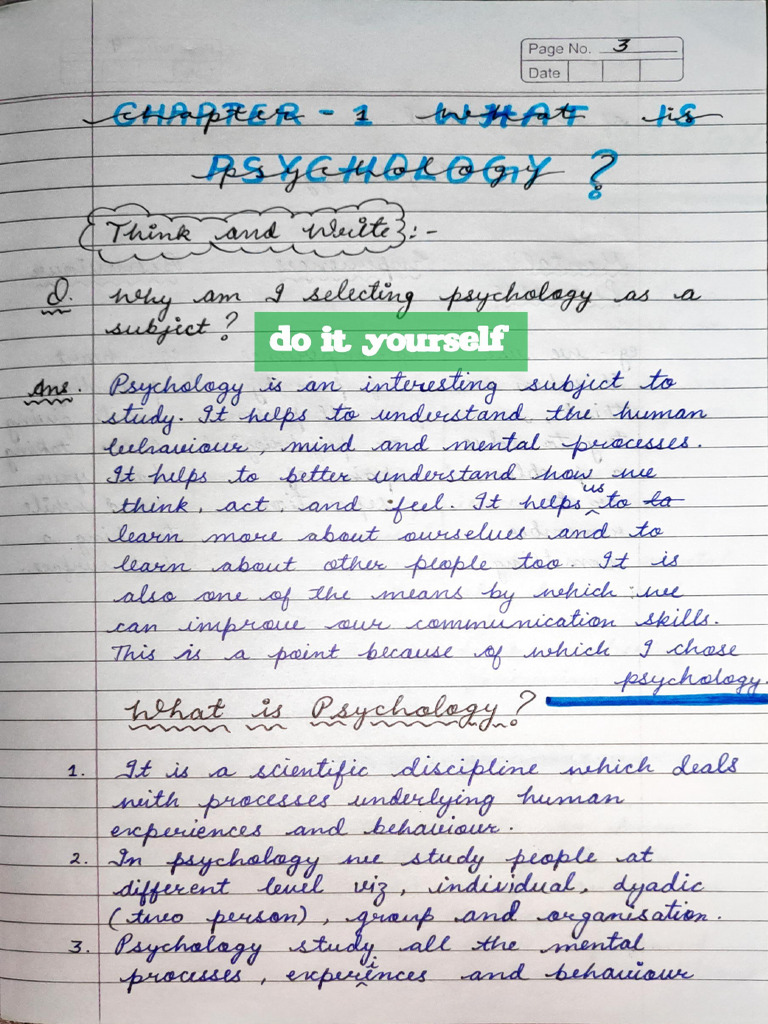 Page No. 3
Date
CHAPTER - 1 WHAT IS
chapter 1 what is
PSYCHOLOGY ?
psychology
Think and Write :-
Q. Why am I selecting psychology as a
subject?
do it yourself
Ans. Psychology is an interesting subject to
study. It helps to understand the human
behaviour, mind and mental processes.
It helps to better understand how we
think, act and feel. It helps us to to
learn more about ourselves and to
learn about other people too. It is
also one of the means by which we
can improve our communication skills.
This is a point because of which I chose
psychology.
What is Psychology?
1. It is a scientific discipline which deals
with processes underlying human
experiences and behaviour.
2. In psychology we study people at
different level viz, individual, dyadic
(two person), group and organisation.
3. Psychology study all the mental
processes, experiences and behaviour